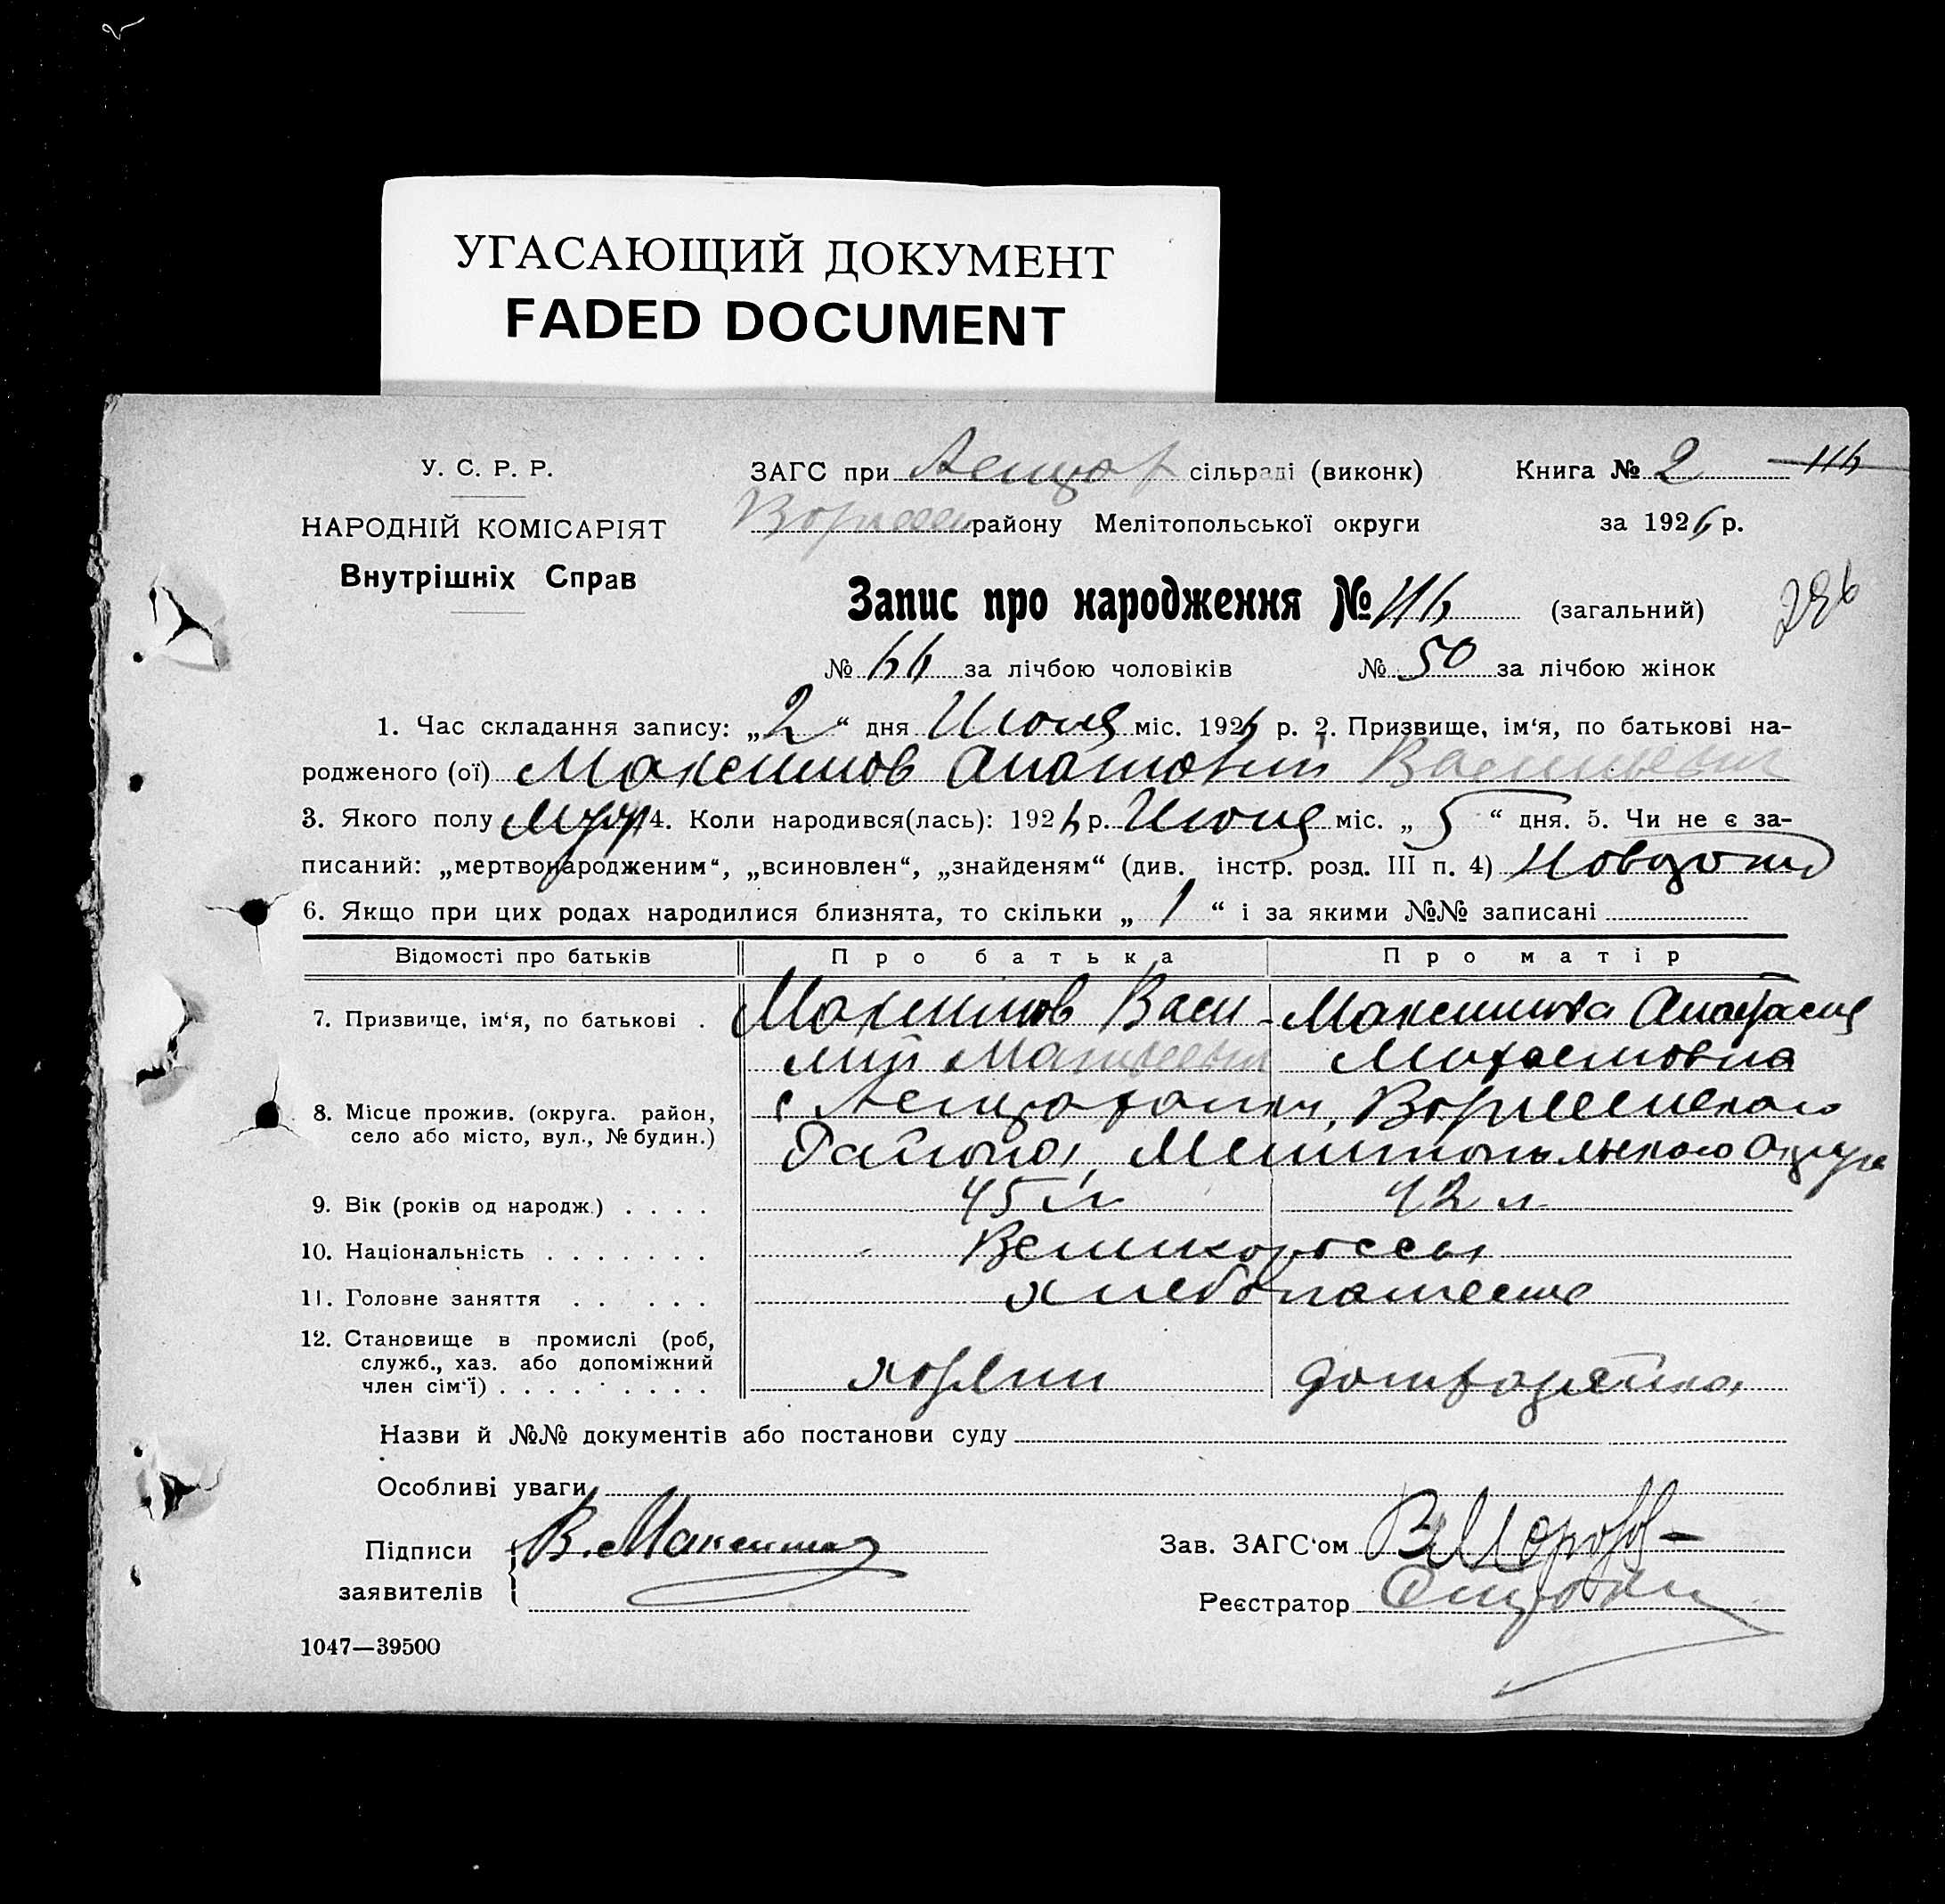 УГАСАЮЩИЙ ДОКУМЕНТ
FADED DOCUMENT
У. С. Р. Р.
НАРОДНІЙ КОМІСАРІЯТ
Внутрішніх Справ
ЗАГС при сільраді (виконк)
району Мелітопольської округи
Книга № 2 116
за 1926 р.
Запис про народження № 116 (загальний)
286
№ 66 за лічбою чоловіків № 50 за лічбою жінок
1. Час складання запису: „2“ дня Июля міс. 1926 р. 2. Призвище, ім‘я, по батькові на-
родженого (ої) Максимов Анатолий Васильевич
3. Якого полу Муж 4. Коли народився(лась): 1926 р. міс. „5“ дня. 5. Чи не є за-
писаний: „мертвонародженим“, „всиновлен“, „знайденям“ (див. інстр. розд. III п. 4)
6. Якщо при цих родах народилися близнята, то скільки „1“ і за якими №№ записані
Відомості про батьків Про батька Про матір
7. Призвище, ім‘я, по батькові . Максимов Васи- Максимова Анастасия
лий Матвеевич
8. Місце прожив. (округа. район,
село або місто, вул., № будин.)
Района, Мелитопольского Округа
9. Вік (років од народж.) . . . . 45 л 42 л
10. Національність . . . . . . . Великороссы
11. Головне заняття . . . . . хлебопашество
12. Становище в промислі (роб,
служб., хаз. або допоміжний
член сім‘ї) . . . . . . . . . хозяин домхозяйка
Назви й №№ документів або постанови суду
Особливі уваги
Підписи В. Максимов
заявителів
Зав. ЗАГС‘ом В Морозов
Реєстратор
1047—39500